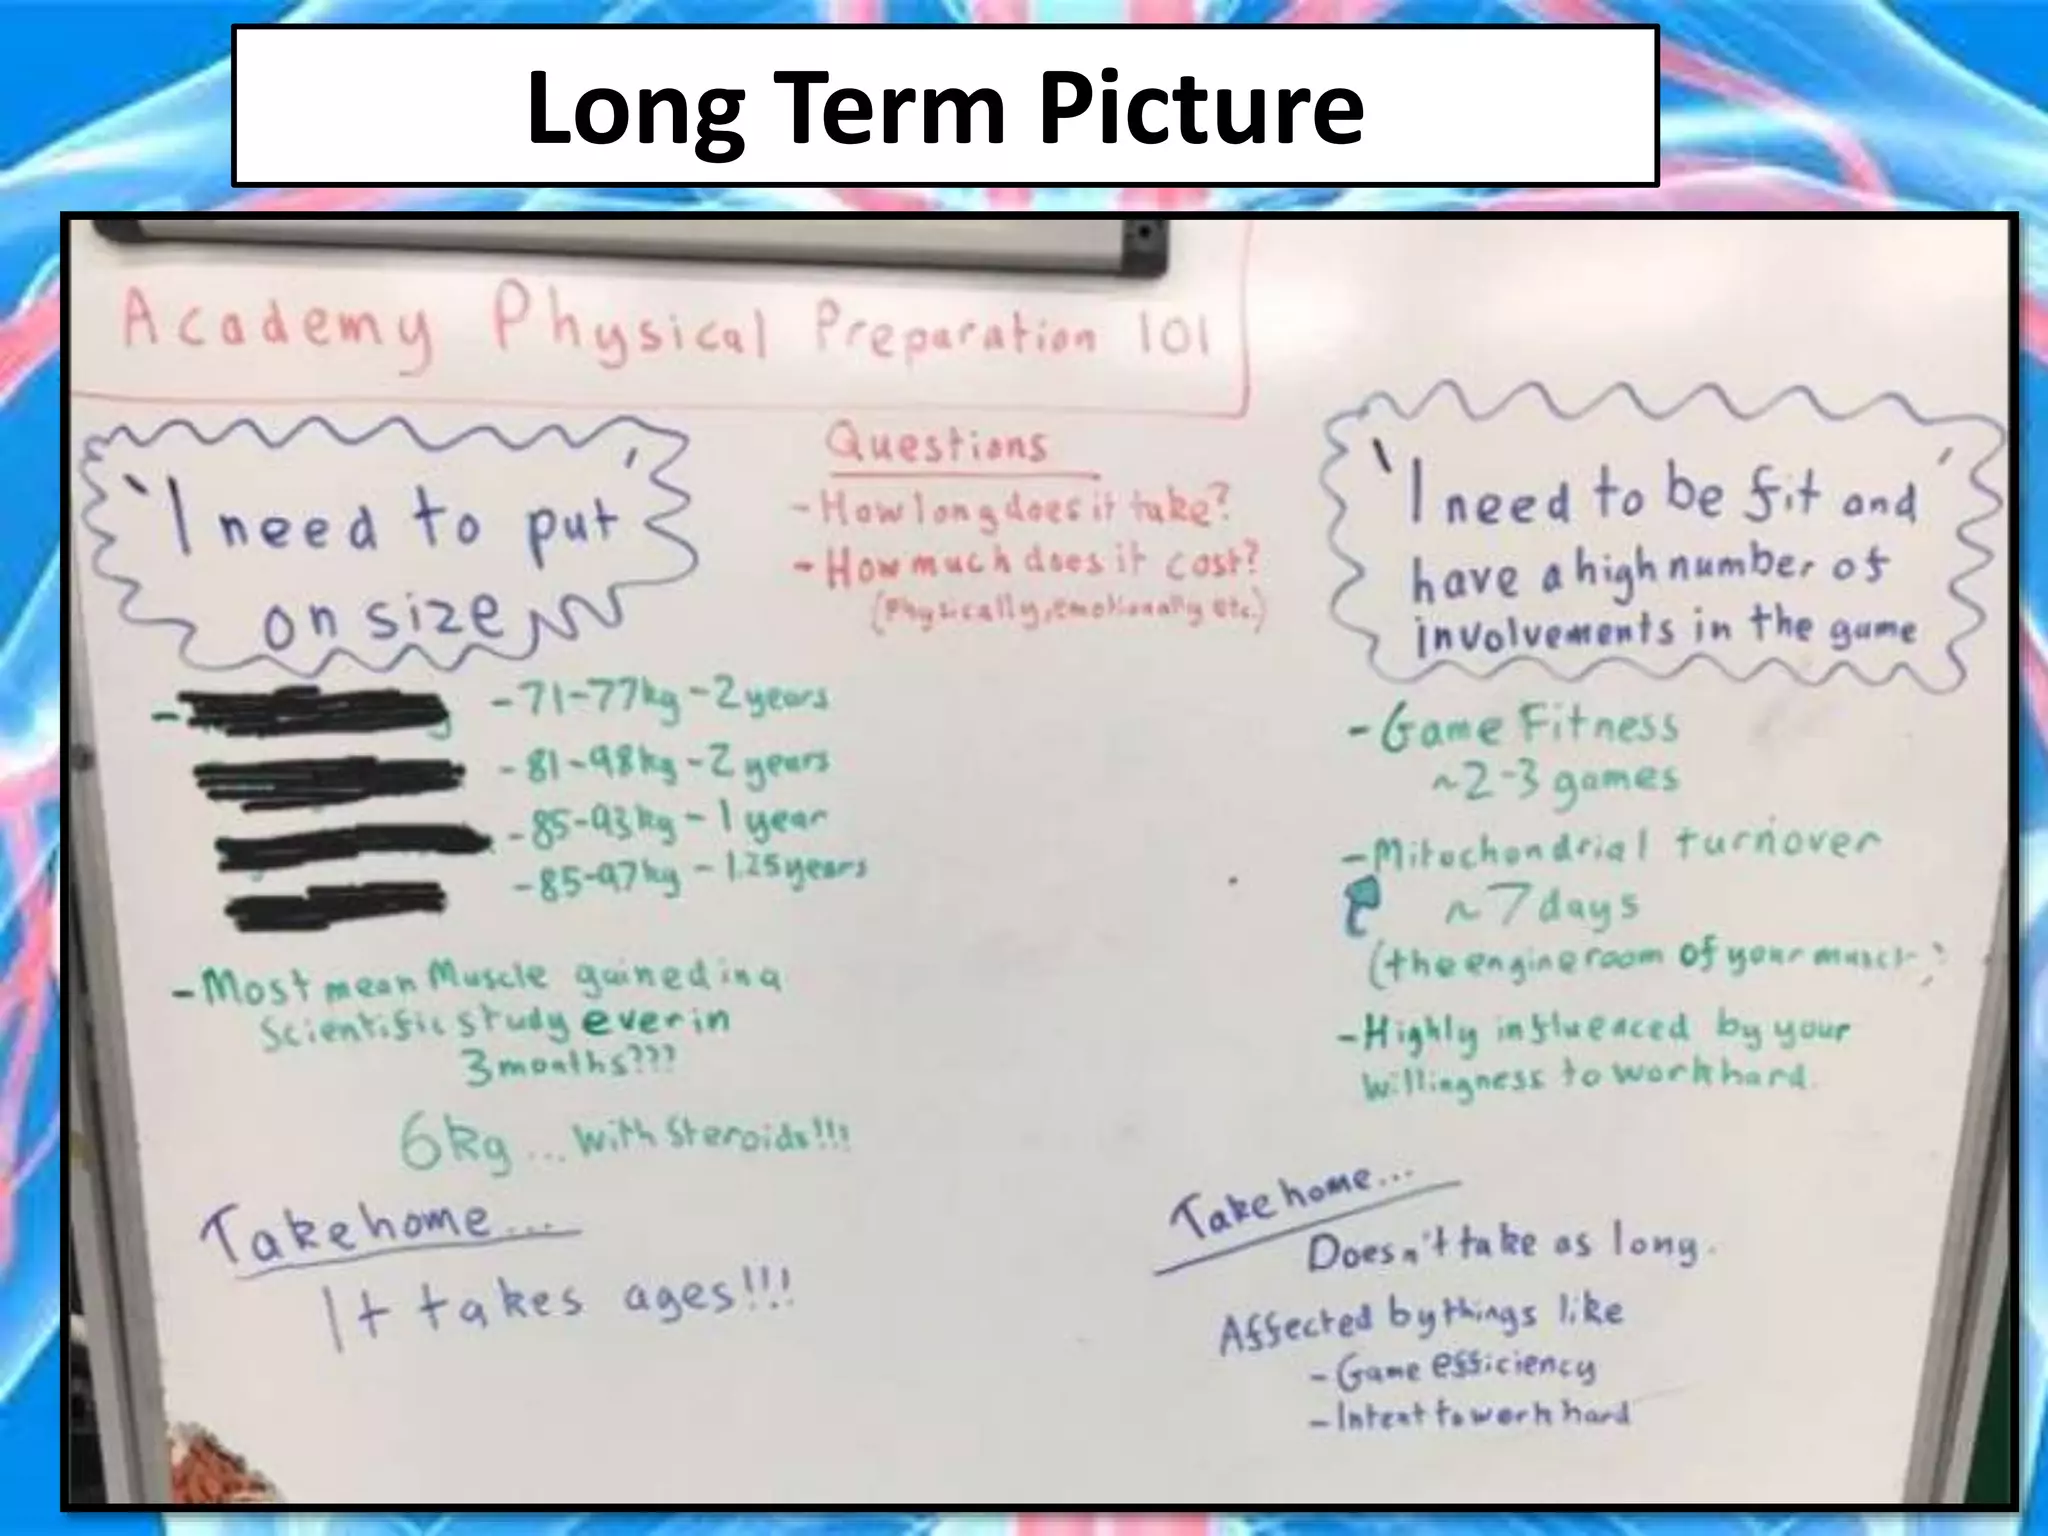 Long Term Picture
Academy Physical Preparation 101
'I need to put
on size'
- 71-77kg - 2 years
- 81-98kg - 2 years
- 85-93kg - 1 year
- 85-97kg - 1.25 years
- Most mean Muscle gained in a
Scientific study ever in
3 months???
6kg ... with Steroids!!!
Take home...
It takes ages!!!
Questions
- How long does it take?
- How much does it cost?
(Physically, emotionally etc.)
'I need to be fit and
have a high number of
involvements in the game'
- Game Fitness
~2-3 games
- Mitochondrial turnover
~7 days
(the engine room of your muscle)
- Highly influenced by your
willingness to work hard.
Take home...
Doesn't take as long.
Affected by things like
- Game efficiency
- Intent to work hard